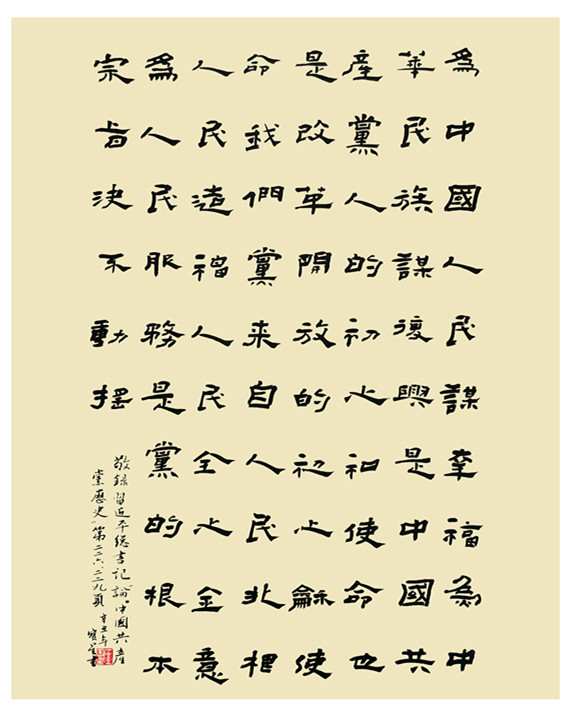 為中國人民謀幸福為中
華民族謀復興是中國共
產黨人的初心和使命也
是改革開放的初心龢使
命我們黨来自人民扎根
人民造福人民全心全意
為人民服務是黨的根本
宗旨決不動搖
敬録習近平総書記論“中國共產
黨歷史”第二二六、二二九頁 辛丑年 書